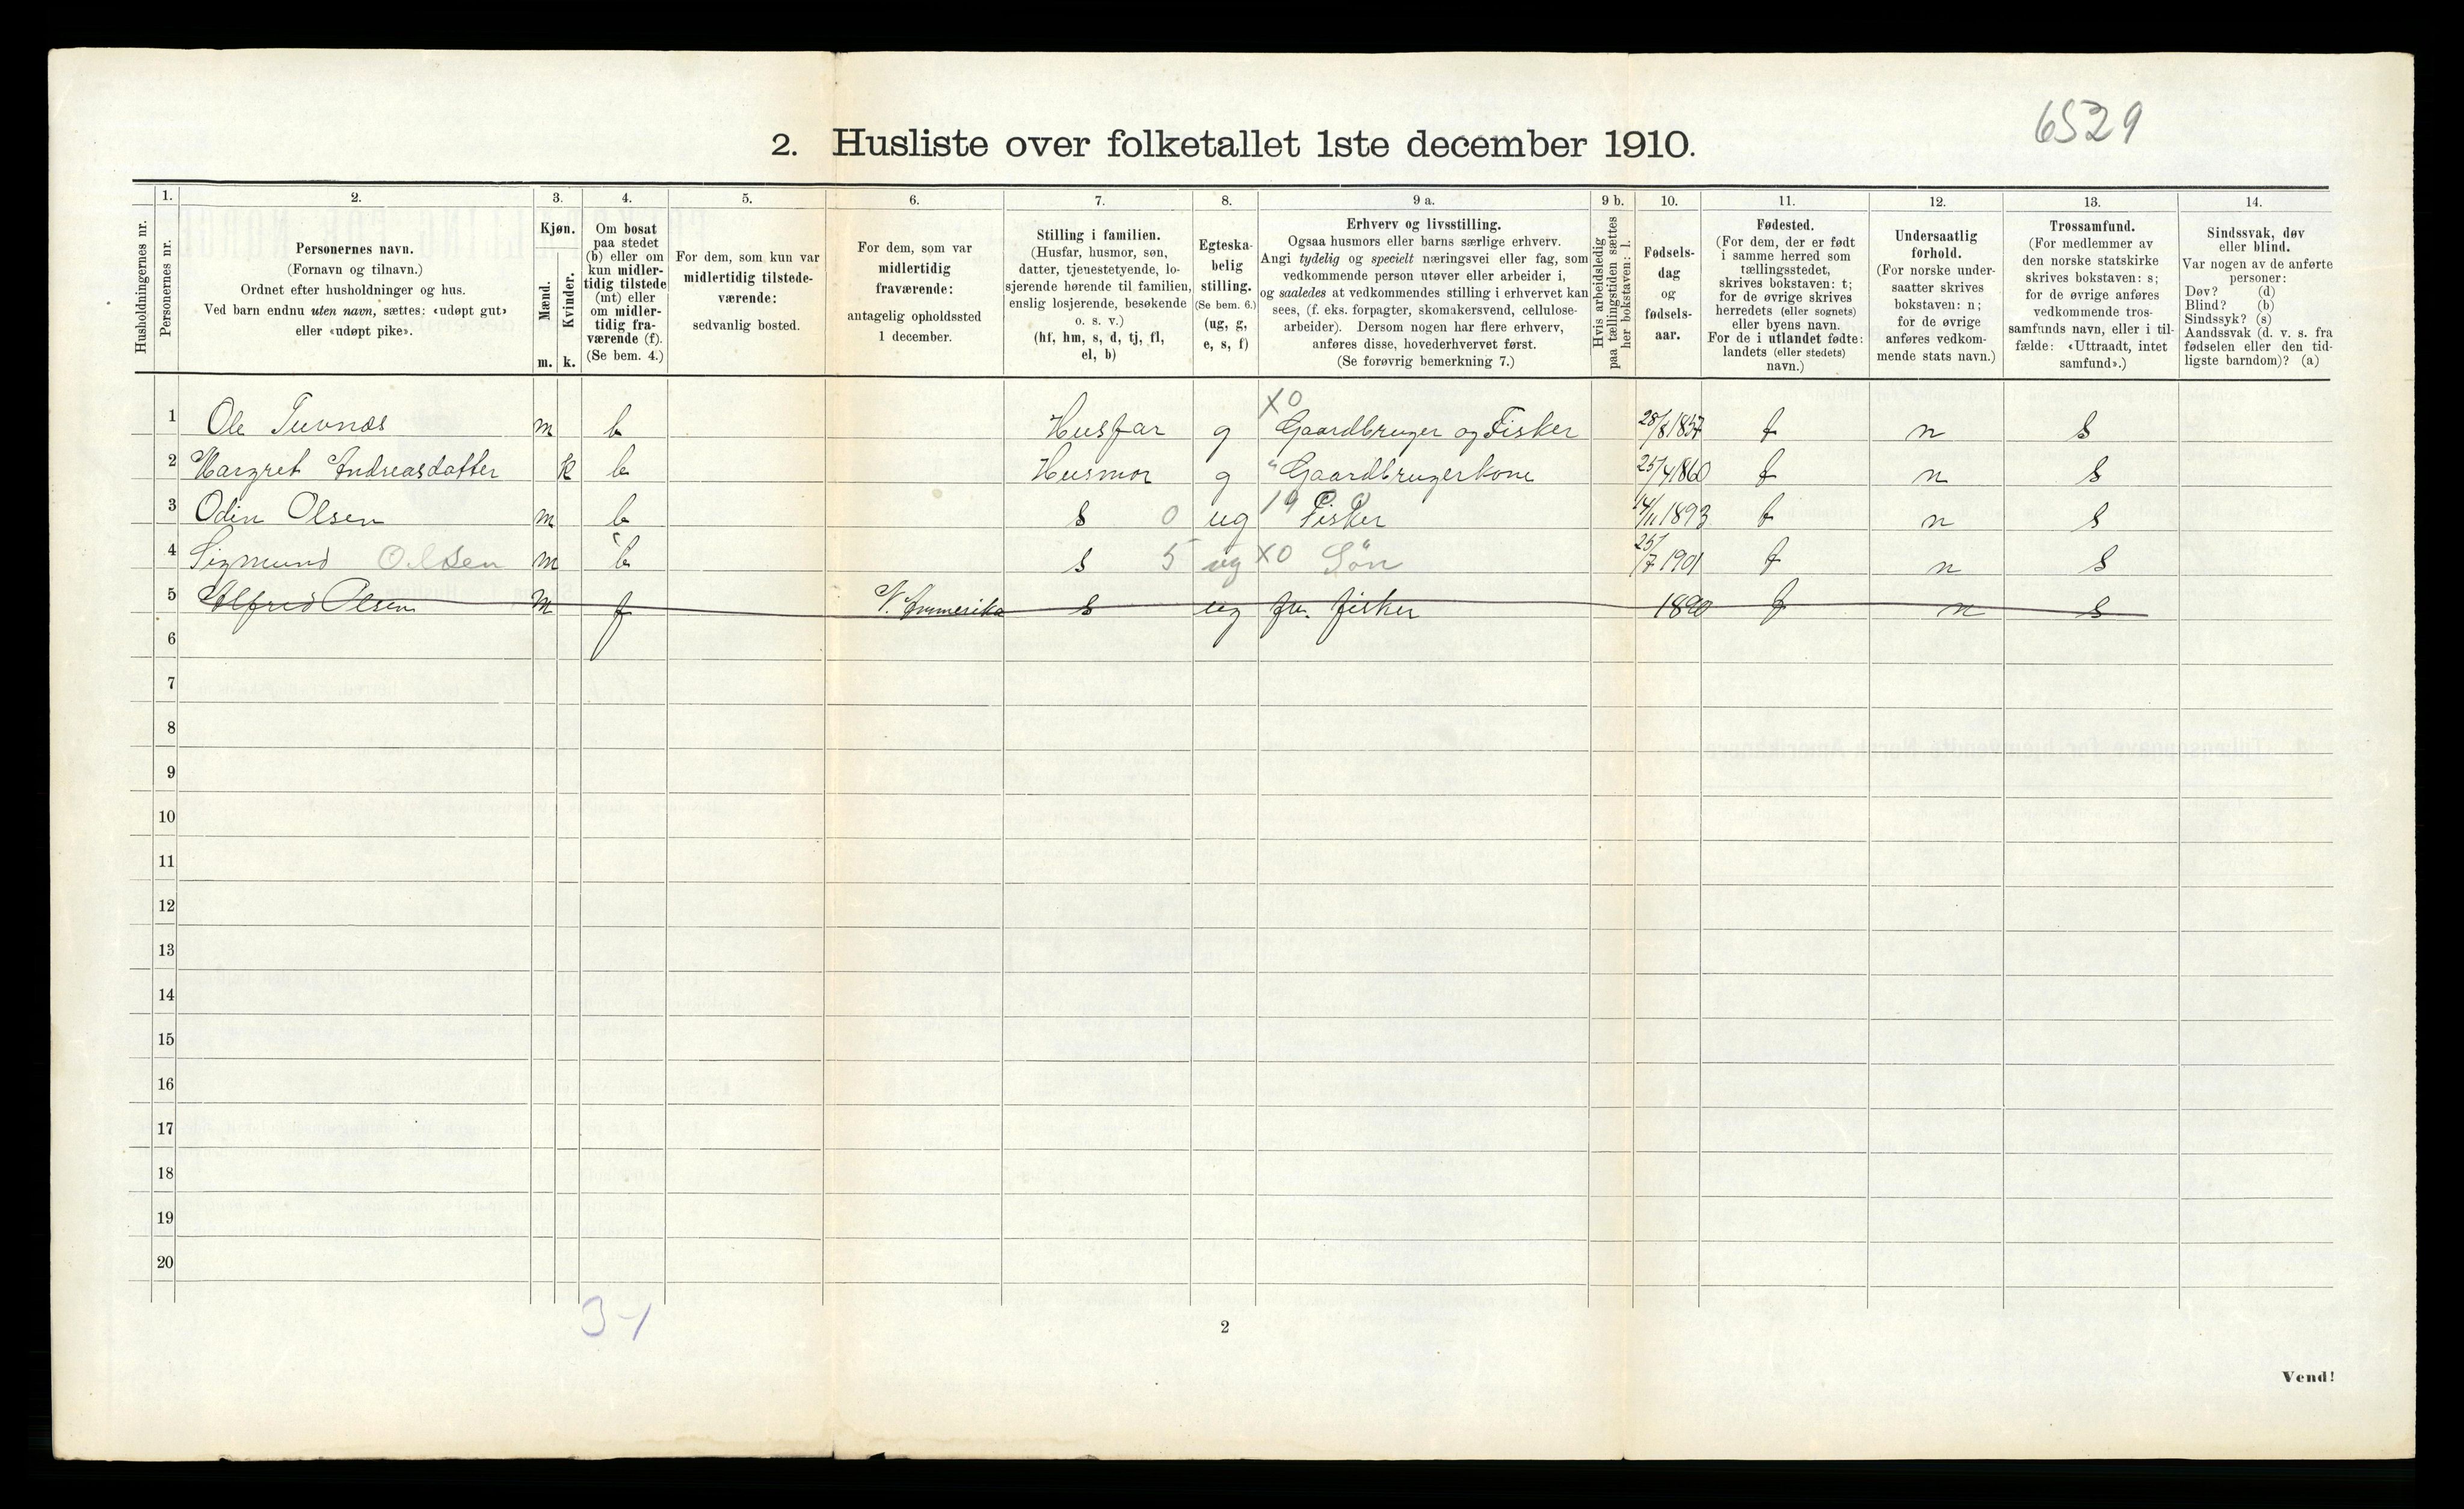 6529
2. Husliste over folketallet 1ste december 1910.
Husholdningernes nr.
1.
Personernes nr.
2.
Personernes navn.
(Fornavn og tilnavn.)
Ordnet efter husholdninger og hus.
Ved barn endnu uten navn, sættes: «udøpt gut»
eller «udøpt pike».
3.
Kjøn.
Mænd.
Kvinder.
m. k.
4.
Om bosat
paa stedet
(b) eller om
kun midler-
tidig tilstede
(mt) eller
om midler-
tidig fra-
værende (f).
(Se bem. 4.)
5.
For dem, som kun var
midlertidig tilstede-
værende:
sedvanlig bosted.
6.
For dem, som var
midlertidig
fraværende:
antagelig opholdssted
1 december.
7.
Stilling i familien.
(Husfar, husmor, søn,
datter, tjenestetyende, lo-
sjerende hørende til familien,
enslig losjerende, besøkende
o. s. v.)
(hf, hm, s, d, tj, fl,
el, b)
8.
Egteska-
belig
stilling.
(Se bem. 6.)
(ug, g,
e, s, f)
9 a.
Erhverv og livsstilling.
Ogsaa husmors eller barns særlige erhverv.
Angi tydelig og specielt næringsvei eller fag, som
vedkommende person utøver eller arbeider i,
og saaledes at vedkommendes stilling i erhvervet kan
sees, (f. eks. forpagter, skomakersvend, cellulose-
arbeider). Dersom nogen har flere erhverv,
anføres disse, hovederhvervet først.
(Se forøvrig bemerkning 7.)
9 b.
Hvis arbeidsledig
paa tællingstiden sættes
her bokstaven: l.
10.
Fødsels-
dag
og
fødsels-
aar.
11.
Fødested.
(For dem, der er født
i samme herred som
tællingsstedet,
skrives bokstaven: t;
for de øvrige skrives
herredets (eller sognets)
eller byens navn.
For de i utlandet fødte:
landets (eller stedets)
navn.)
12.
Undersaatlig
forhold.
(For norske under-
saatter skrives
bokstaven: n;
for de øvrige
anføres vedkom-
mende stats navn.)
13.
Trossamfund.
(For medlemmer av
den norske statskirke
skrives bokstaven: s;
for de øvrige anføres
vedkommende tros-
samfunds navn, eller i til-
fælde: «Uttraadt, intet
samfund».)
14.
Sindssvak, døv
eller blind.
Var nogen av de anførte
personer:
Døv? (d)
Blind? (b)
Sindssyk? (s)
Aandssvak (d. v. s. fra
fødselen eller den tid-
ligste barndom)? (a)
X0
1 Ole Tuvnæs m b Husfar g Gaardbruger og Fisker 28/8 1857 t n s
2 Margret Andreasdatter k b Husmor g " Gaardbrugerkone 25/4 1860 t n s
3 Odin Olsen m b s 0 ug 19 Fisker 14/11 1893 t n s
4 Sigmund Olsen m b s 5 ug X0 Søn 25/7 1901 t n s
5 Alfred Olsen m f N. Ammerika s ug fn. fisker 1890 t n s
6
7
8
9
10
11
12
13
14
15
16
17
18
19
20
3-1
2
Vend!